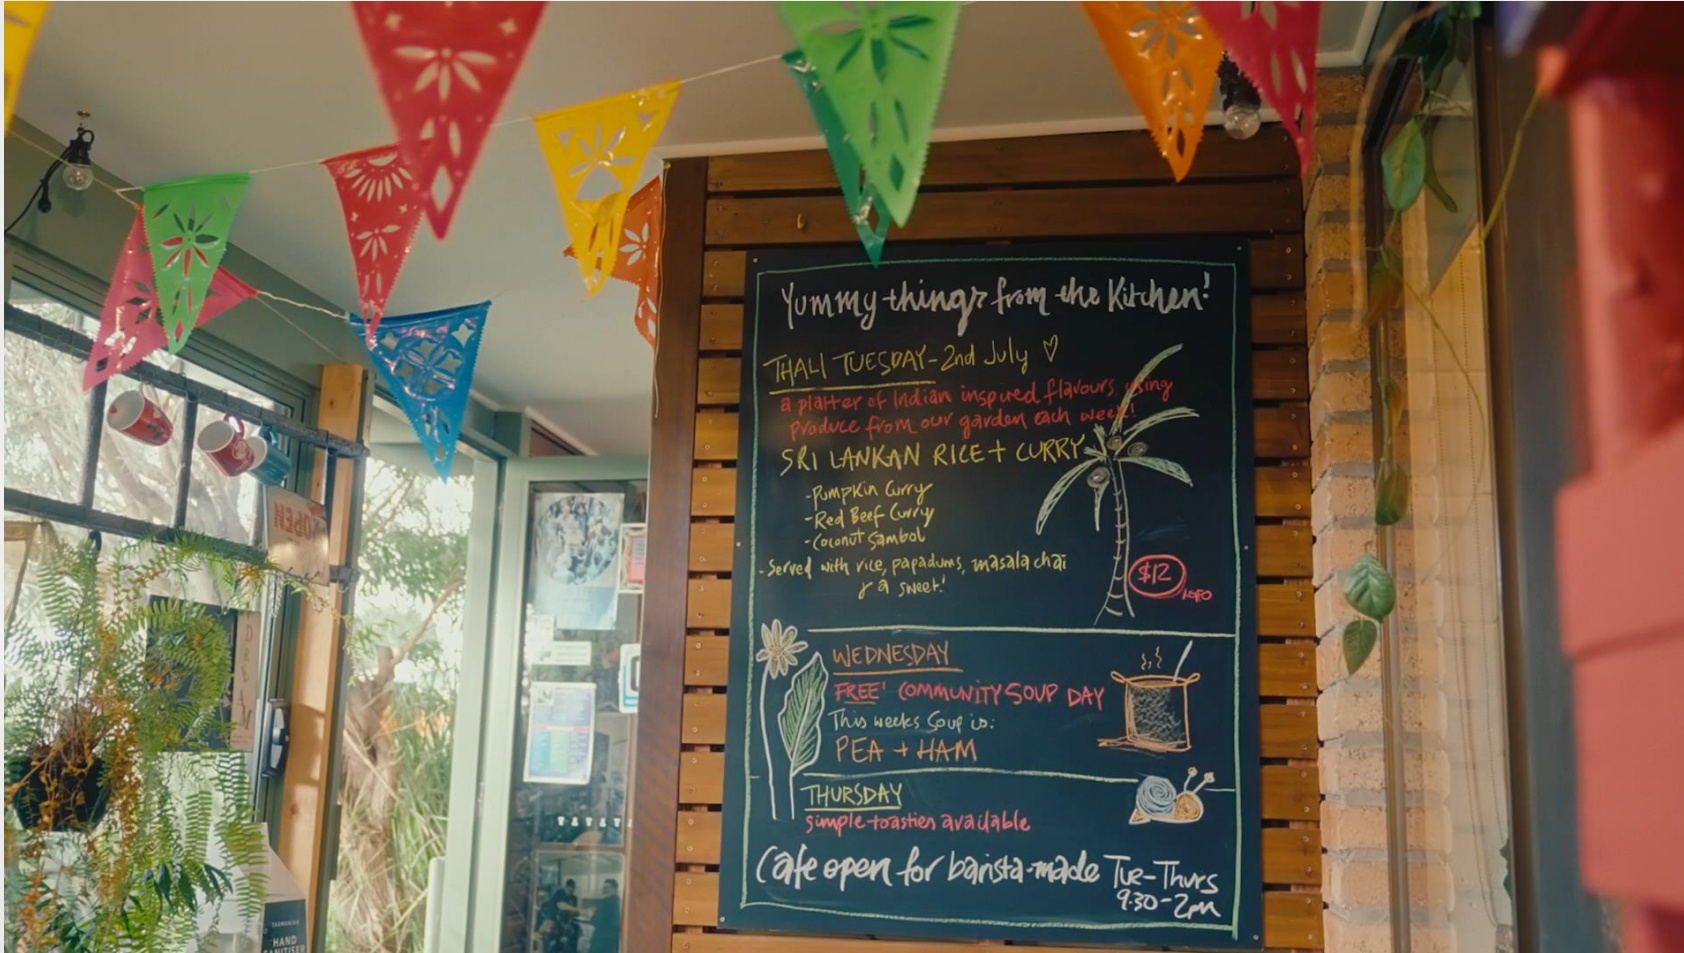 Yummy things from the Kitchen!
THALI TUESDAY - 2nd July
a platter of Indian inspired flavours, using
produce from our garden each week!
SRI LANKAN RICE + CURRY
- Pumpkin Curry
- Red Beef Curry
- Coconut Sambol
- Served with rice, papadums, masala chai
& a sweet!
$12
WEDNESDAY
FREE! COMMUNITY SOUP DAY
This weeks Soup is:
PEA + HAM
THURSDAY
simple toasties available
Cafe open for barista-made Tue-Thurs
9.30-2pm
OPEN
DREAM
HAND
SANITISER